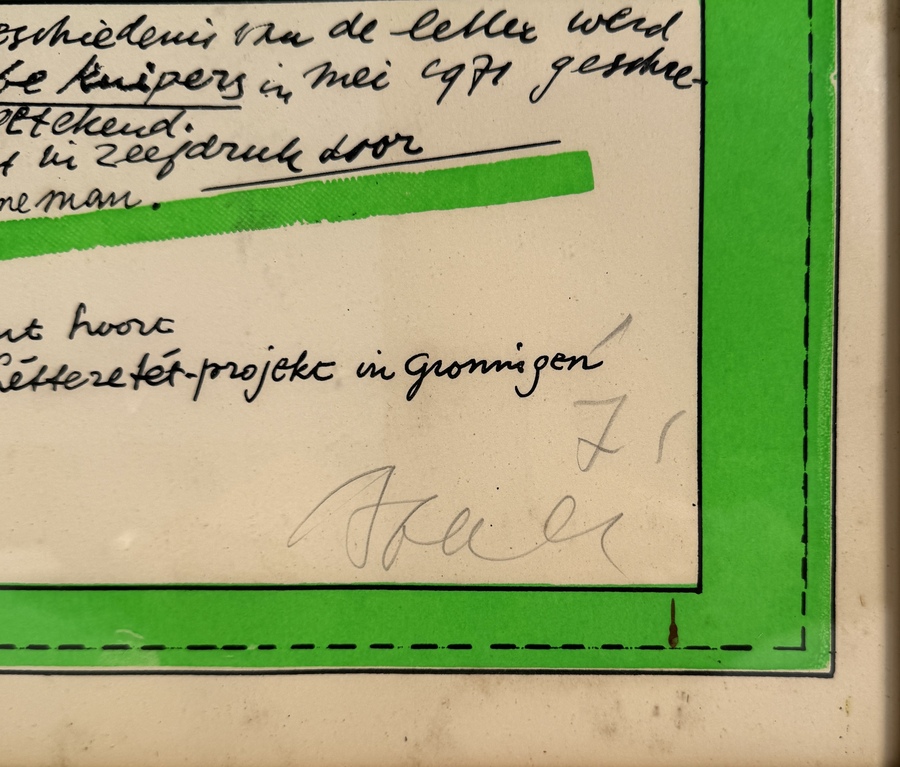 eschiedenis van de letter werd
be Kuipers in mei 1971 geschre-
getekend.
t in zeefdruk door
neman.
ut hoort
Létteretét-projekt in Groningen
71